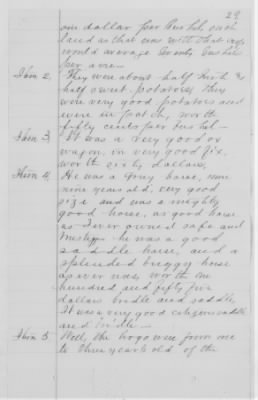 29
one dollar per bushel, such
land as that was with that crop
would average twenty bushels
per acre.
Item 2. They were about half Irish &
half sweet potatoes, they
were very good potatoes and
were in patch, worth
fifty cents per bushel.
Item 3. It was a very good ox
wagon, in very good fix,
worth sixty dollars.
Item 4. He was a Grey horse, some
nine years old, very good
size and was a mighty
good horse, as good horse
as I ever owned safe and
he was a good
saddle horse, and a
splendid buggy horse
as ever was, worth one
hundred and fifty five
dollars bridle and saddle
It was a very good citizens saddle
and bridle
Item 5. Well, the hogs were from one
to three years old of the